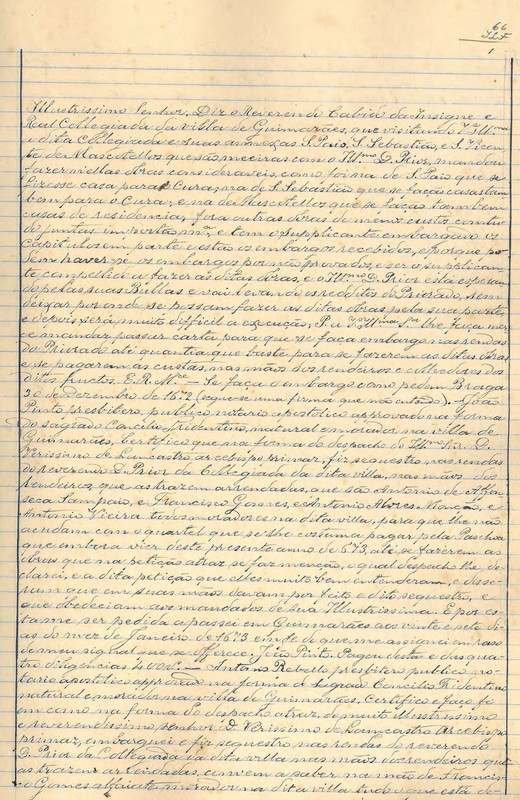 66
1
Illustrissimo Senhor. Diz o Reverendo Cabido da Insigne e
Real Collegiada da villa de Guimarães, que visitando V.ª Ill.ma
a dita Collegiada e suas annexas S. Paio, S. Sebastião, e S. Vicen-
te de Mascotellos que são meeiras com o Ill.mo D. Prior, mandou
fazer nellas obras consideraveis, como foi na de S. Paio que se
fizesse casa para o Cura, na de S. Sebastião que se faças casas tam
bem para o Cura, e na de Mascotellos que se faças tambem
casas de residencia, fora outras obras de menor custo, com tu-
do juntas importa m.to, e tem o supplicante embargado os
Capitulos em parte e estão os embargos recebidos, e porque po-
dem haver-se os embargos por não provados, e ser o supplican-
te compellido a fazer as ditas obras, e o Ill.mo D. Prior está esperan-
do pelas suas Bullas e vai levando os redditos do Priorado, sem
deixar por onde se possam fazer as ditas obras pela sua parte,
e depois será muito difficil a execução, P. a V.ª Ill.ma lhe faça mer-
ce mandar passar carta para que se faça embargo nas rendas
do Priorado até quantia que baste para se fazerem as ditas obras
e se pagarem as custas, nas mãos dos rendeiros e colhedores dos
ditos fructos. E. R. M.ce — Se faça o embargo como pedem. Braga
30 de dezembro de 1672 (segue-se uma firma que não entendo). — João
Pinto presbitero, publico notario apostolico approvado na forma
do sagrado Concilio Tridentino, natural e morador na villa de
Guimarães, Certifico que na forma do despacho do Ill.mo Snr. D.
Verissimo de Lancastro arcebispo primaz, fiz sequestro nas rendas
do reverendo D. Prior da Collegiada da dita villa, nas mãos dos
rendeiros que as trazem arrendadas, que são Antonio de Affon-
seca Sampaio, e Francisco Gomes, e Antonio Alvres Monção, e
Antonio Vieira todos moradores na dita villa, para que lhe não
acudam com o quartel que se lhe costuma pagar pela Paschoa
que embora vier deste presente anno de 673, até se fazerem as
obras que na petição atraz se faz menção, o qual despacho lhe de-
clarei, e a dita petição que elles muito bem entenderam, e disse-
ram que em suas mãos davam por feito o dito sequestro, e
que obedeciam aos mandados de Sua Illustrissima. E por es-
ta me ser pedida a passei em Guimarães aos vinte e sete di-
as do mez de Janeiro de 1673 em fé do que me assignei em raso
de meu signal que se offerece, João Pinto. Pagou desta e das qua-
tro diligencias — Antonio Rebello presbitero publico no-
tario apostolico approvado na forma do Sagrado Concilio Tridentino
natural e morador na villa de Guimarães. Certifico e faço fé
em como na forma do despacho atraz, do muito illustrissimo
e reverendissimo senhor D. Verissimo de Lancastro Arcebispo
primaz, embarguei e fiz sequestro nas rendas do reverendo
D. Prior da Collegiada da dita villa nas mãos dos rendeiros que
as trazem arrendadas, convem a saber na mão de Francis-
co Gomes alfaiate morador na dita villa tudo o que está de-